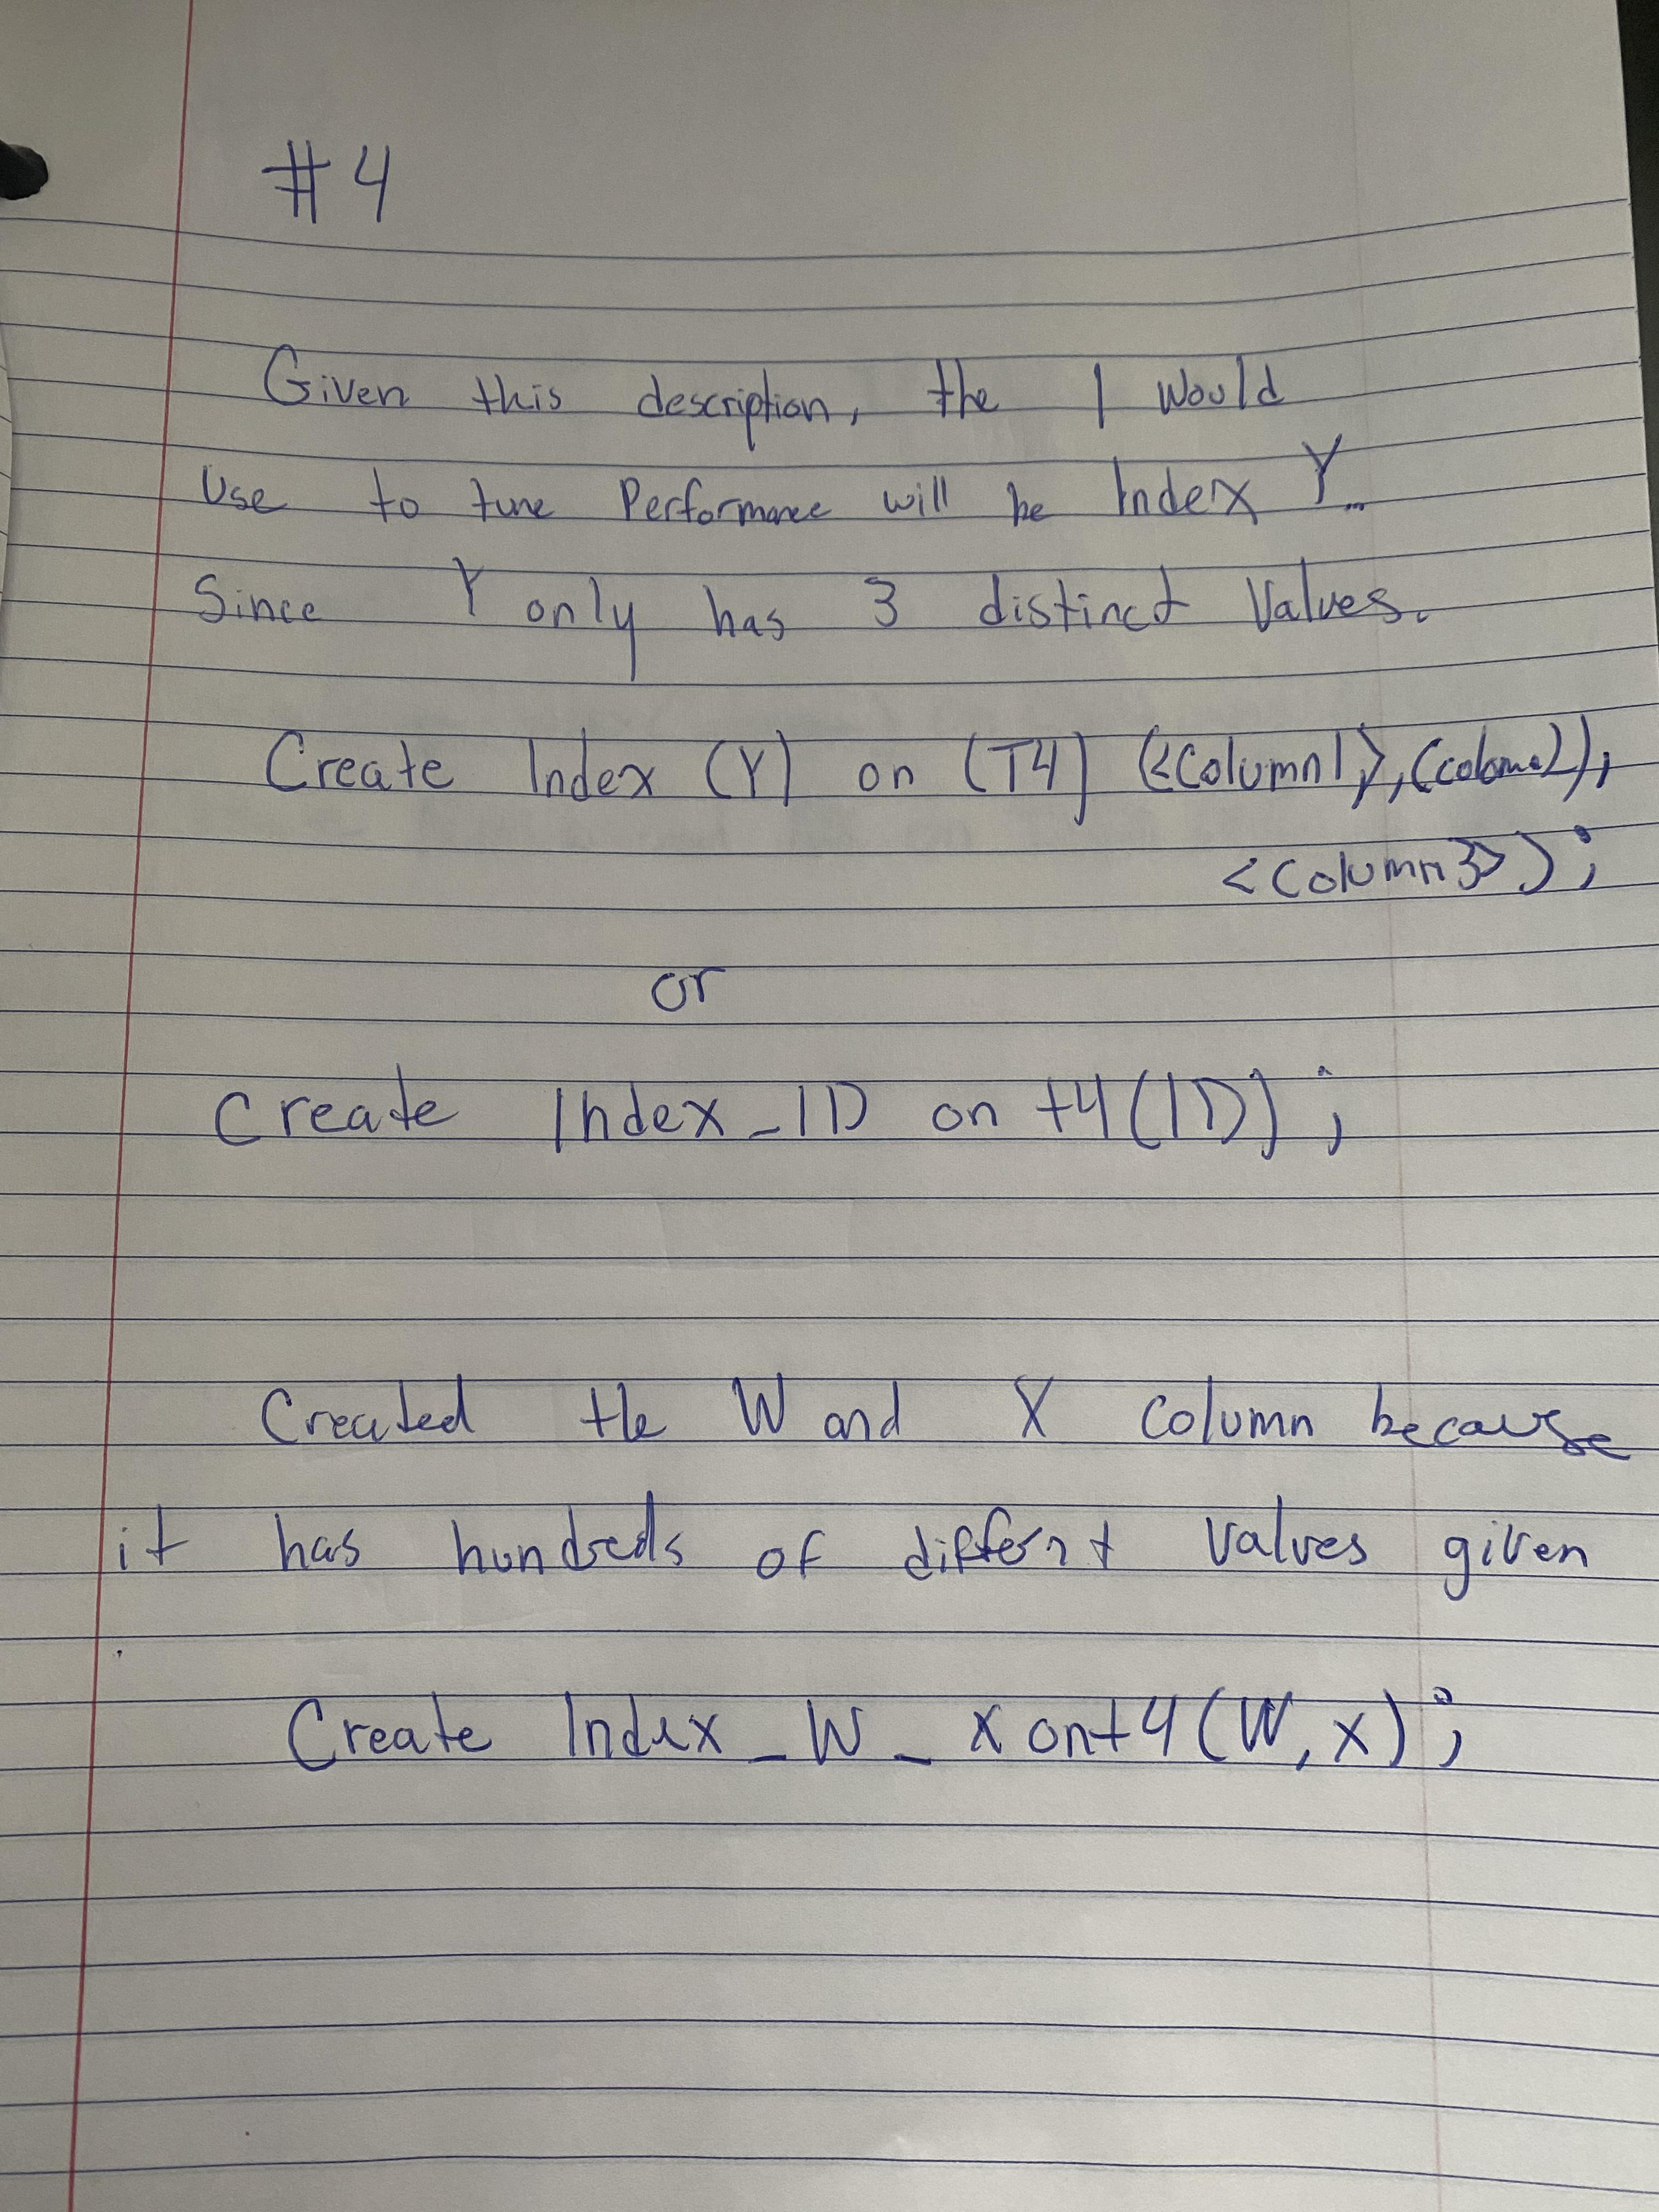 #4
Given this description, the I would
Use to tune Performance will be Index Y...
Since Y only has 3 distinct Values.
Create Index (Y) on (T4) (<Column1>,(colomn2),
<Column3>);
or
Create Index_ID on t4(ID);
Created the W and X Column because
it has hundreds of different Values given
Create Index_W_X on t4(W,X);